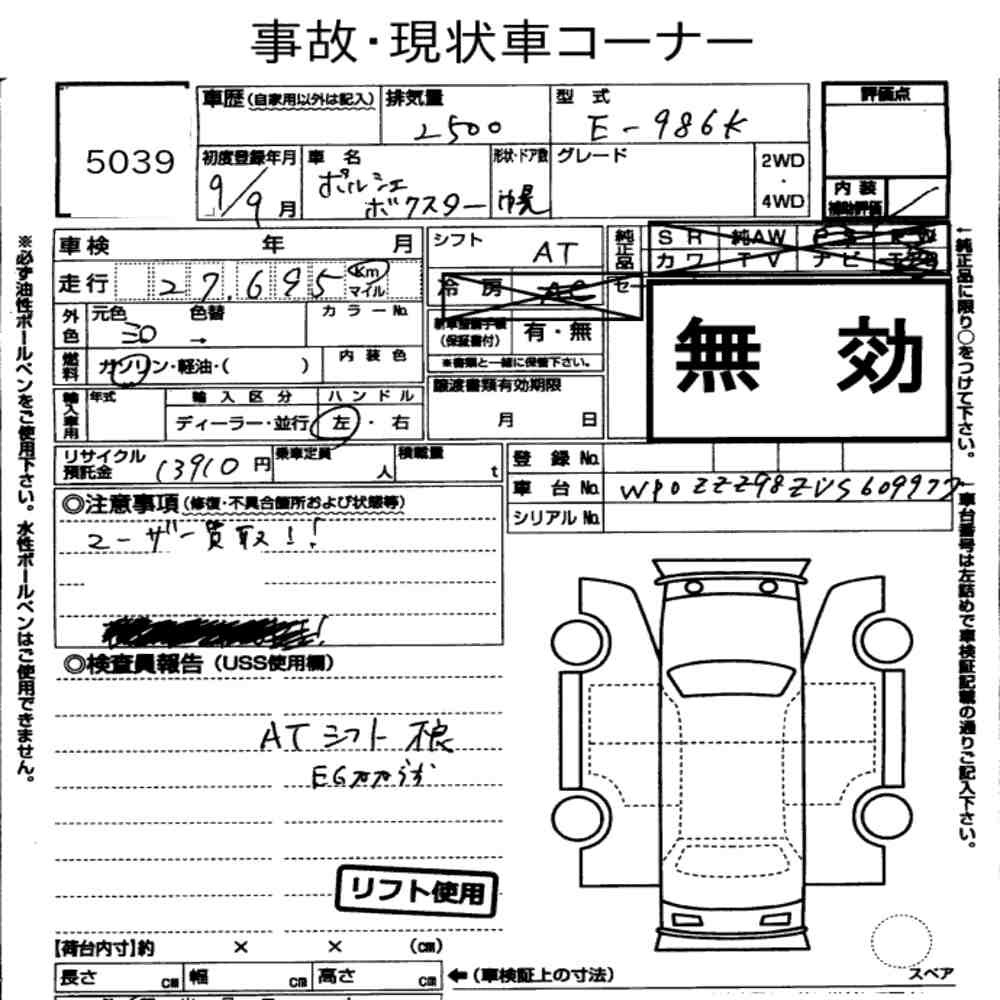 事故・現状車コーナー
5039
車歴(自家用以外は記入)
排気量
2500
型 式
E-986K
評価点
初度登録年月
9/9 月
車 名
ポルシェ
ボクスター
形状・ドア数
幌
グレード
2WD
・
4WD
内 装
補助評価
車検 年 月
シフト
AT
純正品
SR 純AW PS PW
カワ TV ナビ
走行 27,695 Km
マイル
冷房 AC
セ
外色
元色 色替
シロ →
カラーNo.
新車整備手帳
(保証書付)
有・無
※書類と一緒に保管下さい。
無 効
燃料
ガソリン・軽油・( )
内装色
輸入車用
年式
輸入区分
ハンドル
ディーラー・並行
左・右
譲渡書類有効期限
月 日
リサイクル
預託金
13910 円
乗車定員
人
積載量
t
登録 No.
車台 No. WP0ZZZ98ZVS609977
シリアル No.
◎注意事項(修復・不具合箇所および状態等)
ユーザー買取!!
◎検査員報告(USS使用欄)
AT シフト 不良
EG
リフト使用
【荷台内寸】約 × × (㎝)
長さ ㎝ 幅 ㎝ 高さ ㎝
←(車検証上の寸法)
スペア
※必ず油性ボールペンをご使用下さい。水性ボールペンはご使用できません。
←純正品に限り○をつけて下さい。
←車台番号は左詰めで車検証記載の通りご記入下さい。